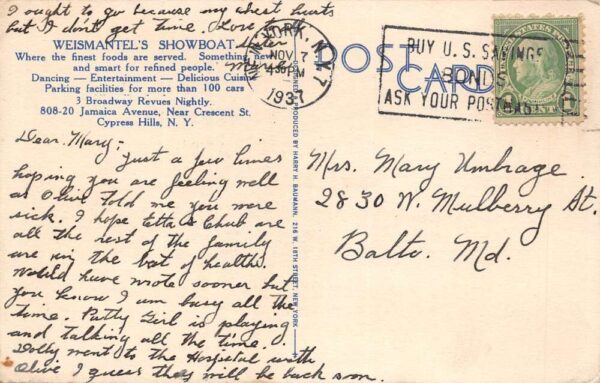 I ought to go because my chest hurts
but I don't get time. Love to all
Sister
Marie
WEISMANTEL'S SHOWBOAT
Where the finest foods are served. Something new
and smart for refined people.
Dancing — Entertainment — Delicious Cuisine
Parking facilities for more than 100 cars
3 Broadway Revues Nightly.
808-20 Jamaica Avenue, Near Crescent St.
Cypress Hills, N. Y.
Dear Mary:
Just a few lines
hoping you are feeling well
as Olive told me you were
sick. I hope Etta & Chub are
all the rest of the family
are in the best of health.
Would have wrote sooner but
you know I am busy all the
time. Patty Girl is playing
and talking all the time.
Dolly went to the Hospital with
Olive I guess they will be back soon.
DESIGNED & PRODUCED BY HARRY H. BAUMANN, 216 W. 18TH STREET, NEW YORK
POST CARD
NEW YORK, N.Y. 7
NOV 7
4 30 PM
1937
BUY U.S. SAVINGS
BONDS
ASK YOUR POSTMASTER
UNITED STATES POSTAGE
1 CENT
Mrs. Mary Umbrage
2830 W. Mulberry St.
Balto. Md.